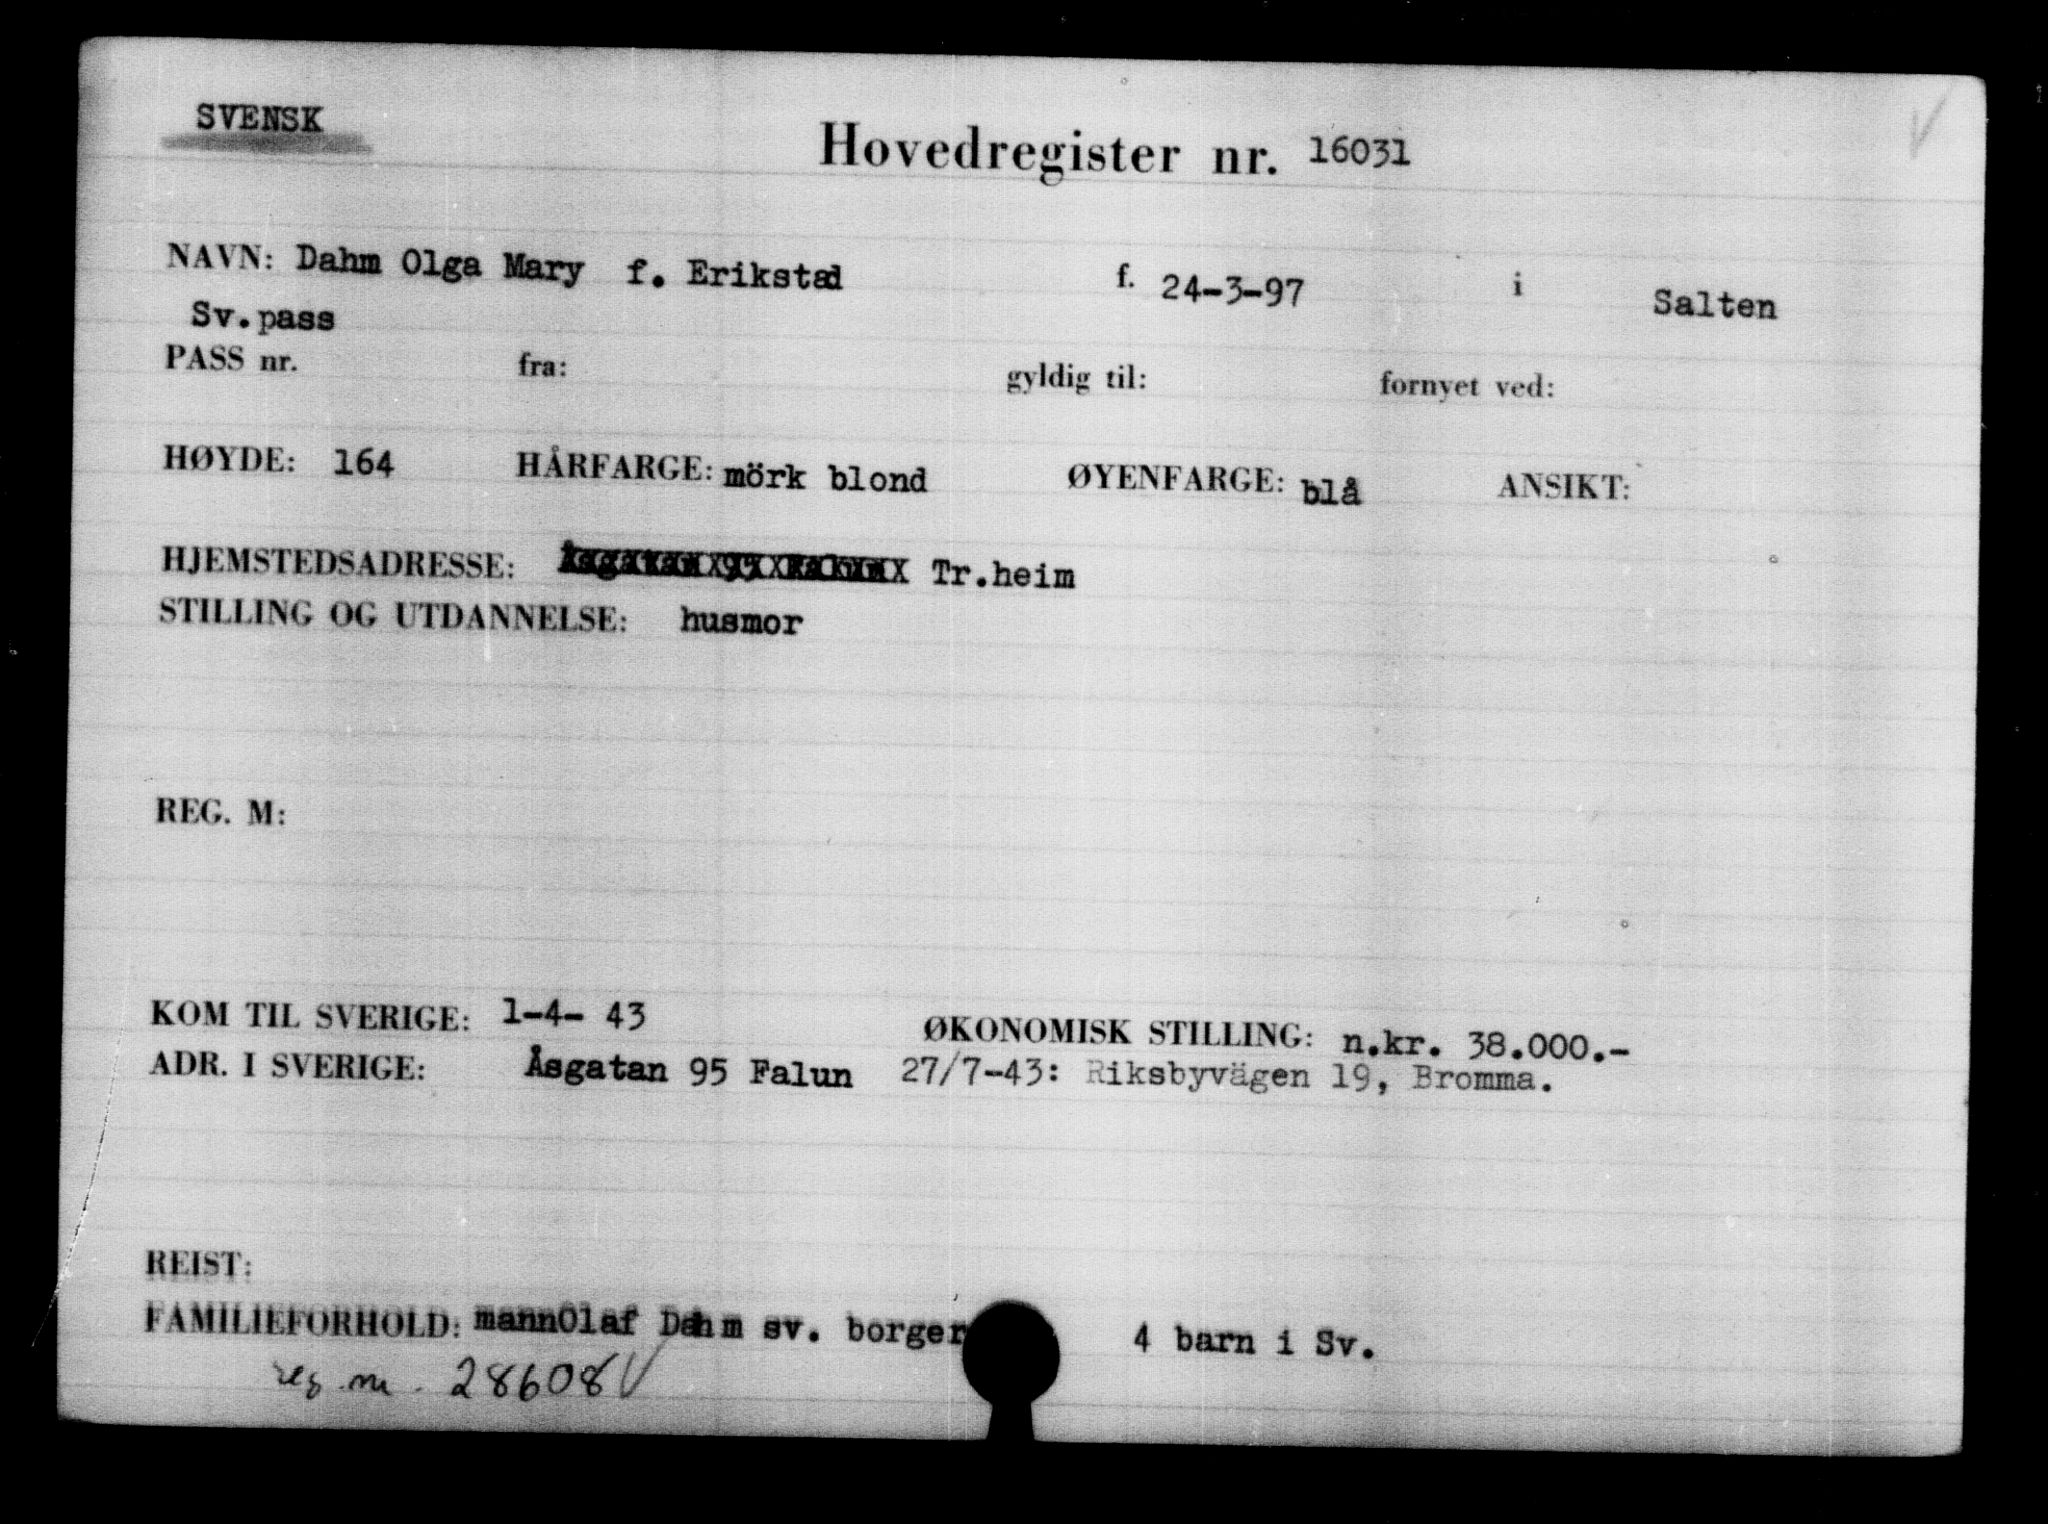 SVENSK
Hovedregister nr. 16031
NAVN: Dahm Olga Mary f. Erikstad f. 24-3-97 i Salten
Sv.pass
PASS nr. fra: gyldig til: fornyet ved:
HØYDE: 164 HÅRFARGE: mörk blond ØYENFARGE: blå ANSIKT:
HJEMSTEDSADRESSE: Åsgatan 95 Falun Tr.heim
STILLING OG UTDANNELSE: husmor
REG. M:
KOM TIL SVERIGE: 1-4- 43 ØKONOMISK STILLING: n.kr. 38.000.-
ADR. I SVERIGE: Åsgatan 95 Falun 27/7-43: Riksbyvägen 19, Bromma.
REIST:
FAMILIEFORHOLD: mannOlaf Dahm sv. borger 4 barn i Sv.
reg. nr. 28608 V